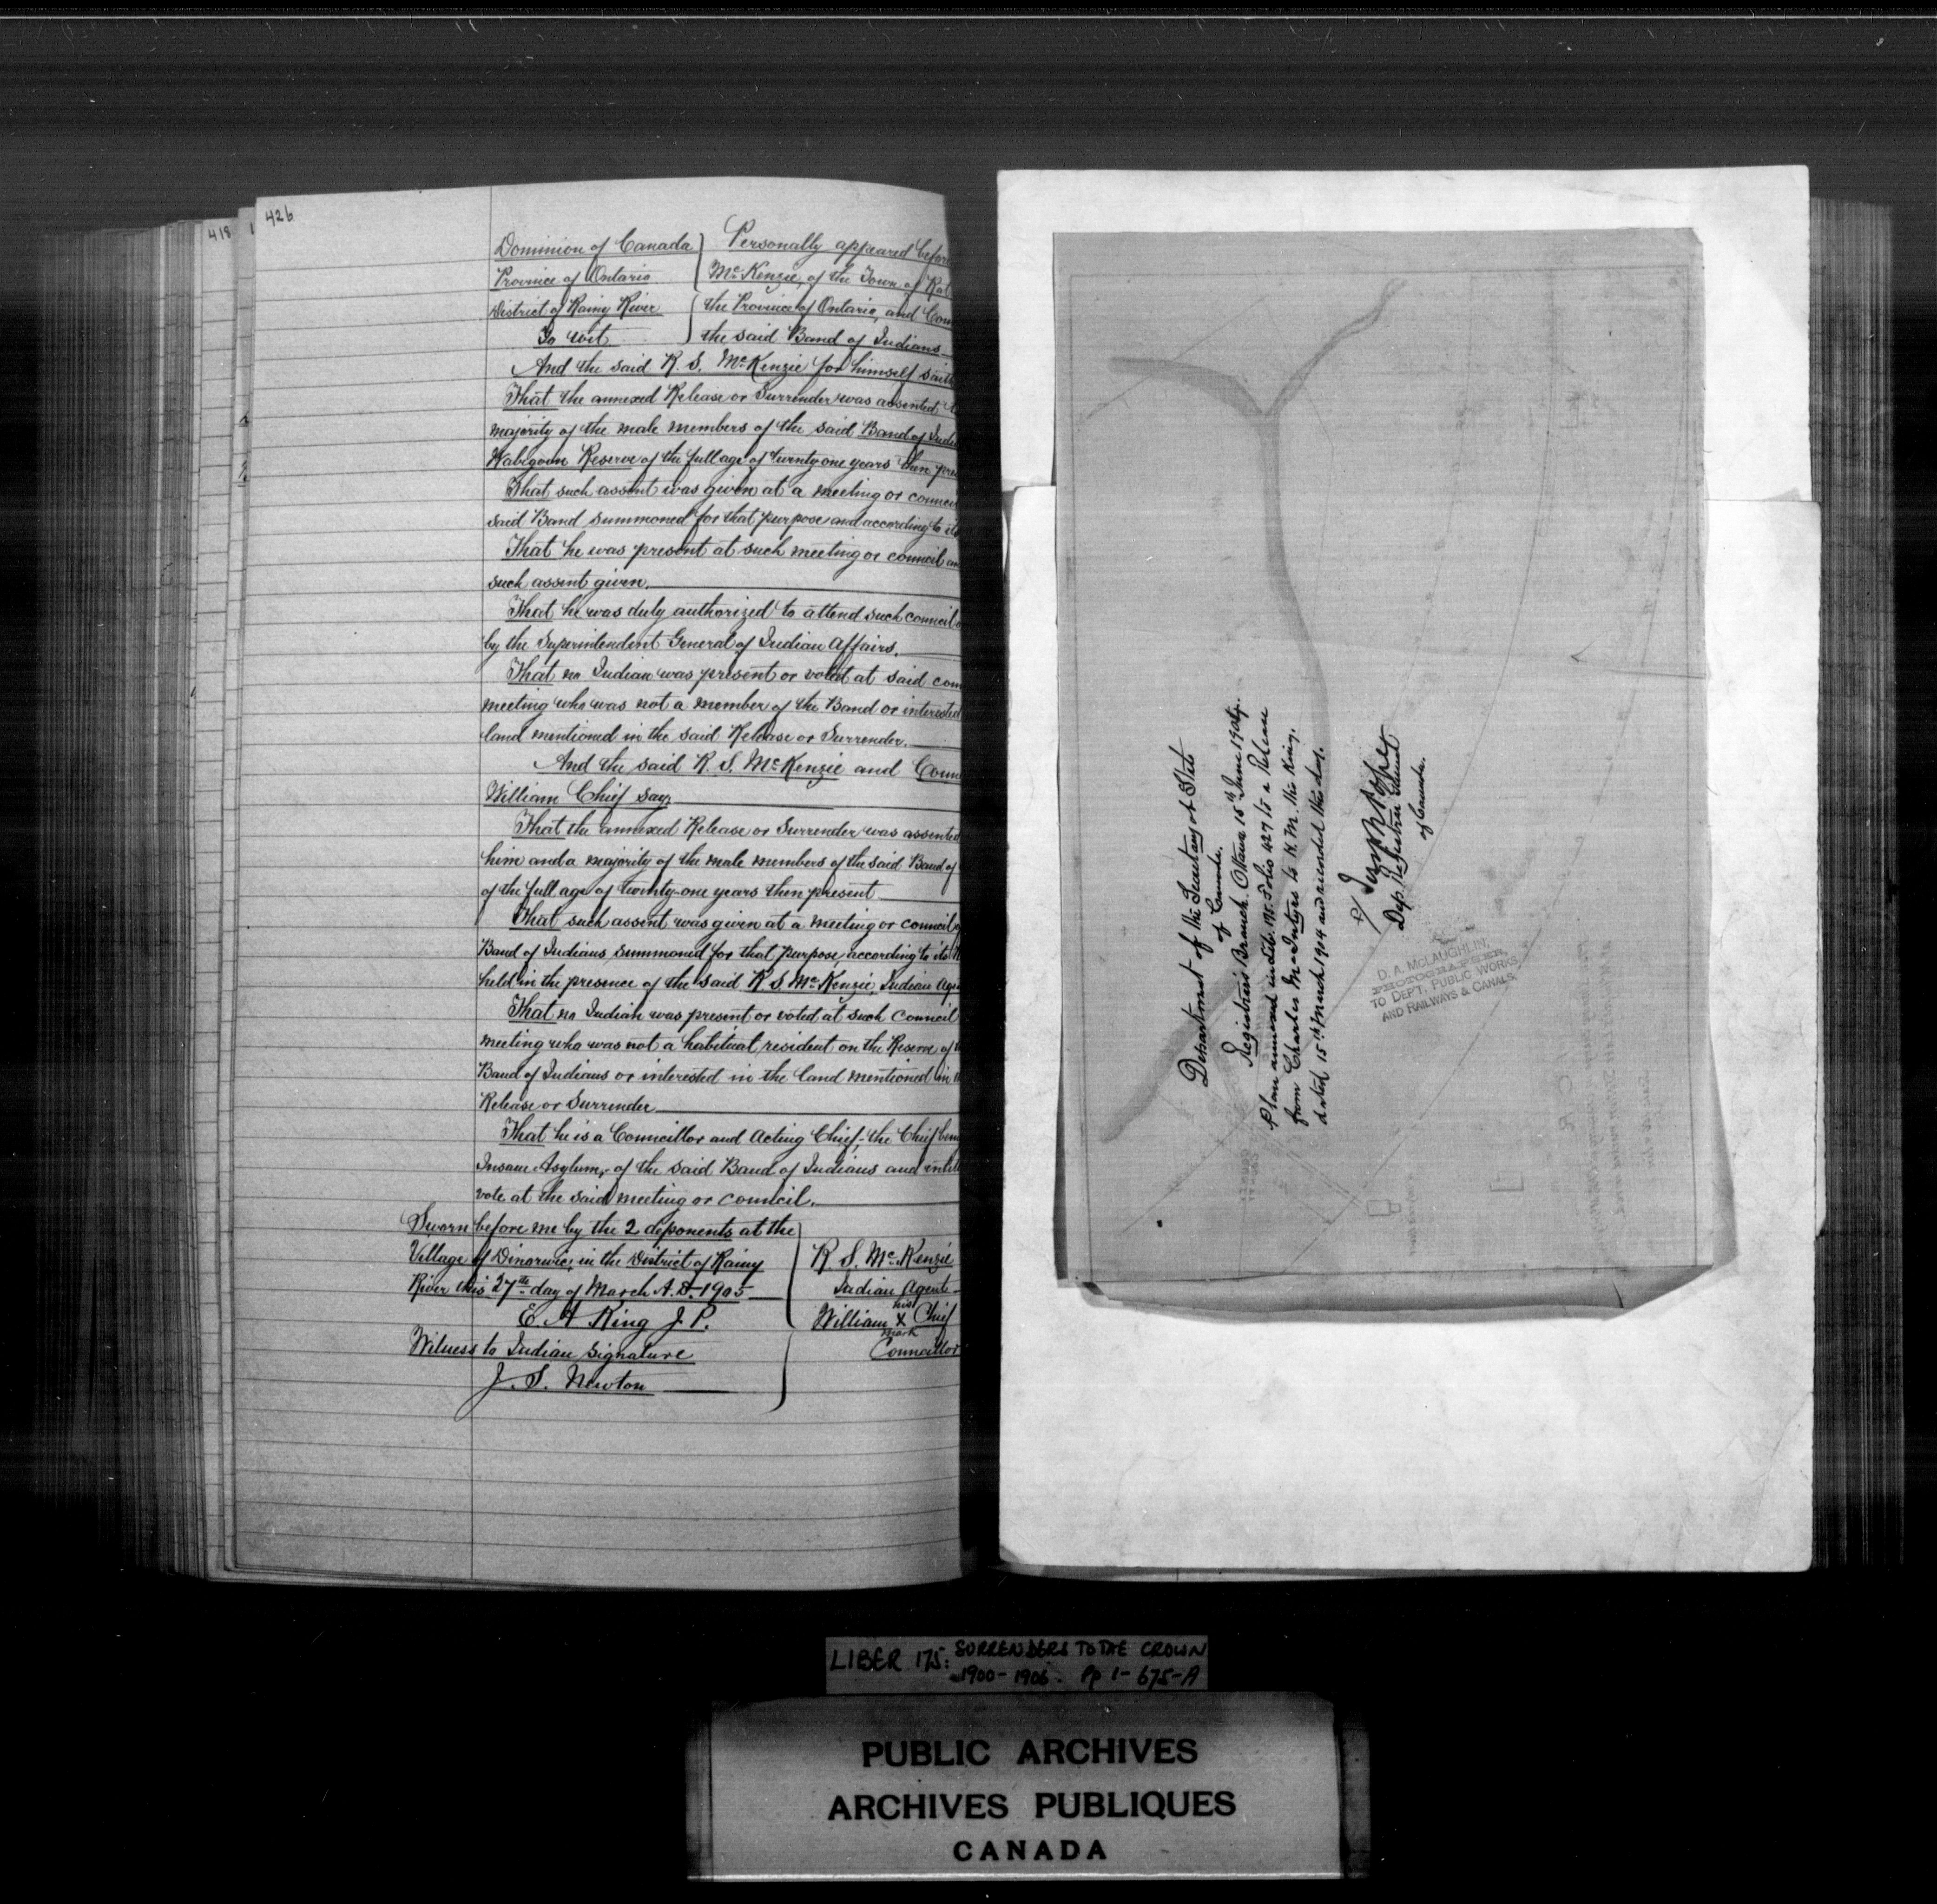 426
418
Dominion of Canada } Personally appeared before
Province of Ontario } McKenzie, of the Town of Rat
District of Rainy River } the Province of Ontario, and Coun
To wit } the said Band of Indians
And the said R. S. McKenzie for himself saith
That the annexed Release or Surrender was assented
majority of the male members of the said Band of Indi
Wabigoon Reserve of the full age of twenty one years then pres
That such assent was given at a meeting or council
said Band summoned for that purpose and according to its
That he was present at such meeting or council an
such assent given.
That he was duly authorized to attend such council
by the Superintendent General of Indian Affairs.
That no Indian was present or voted at said coun
meeting who was not a member of the Band or interested
land mentioned in the said Release or Surrender.
And the said R. S. McKenzie and Coun
William Chief says
That the annexed Release or Surrender was assented
him and a majority of the male members of the said Band of
of the full age of twenty-one years then present
That such assent was given at a meeting or council
Band of Indians summoned for that purpose, according to its
held in the presence of the said R S. McKenzie, Indian Age
That no Indian was present or voted at such council
meeting who was not a habitual resident on the Reserve of
Band of Indians or interested in the land mentioned in
Release or Surrender
That he is a Councillor and Acting Chief,- the Chief bein
Insane Asylum,- of the said Band of Indians and entit
vote at the said meeting or council.
Sworn before me by the 2 deponents at the
Village of Dinorwic, in the District of Rainy
River this 27th day of March A.D. 1905
E A King J. P.
R S. McKenzie
Indian Agent
William his X mark Chief
Councillor
Witness to Indian signature
J. S. Newton
Department of the Secretary of State
of Canada.
Registrar's Branch. Ottawa 15th June 1904.
Plan annexed in Lib. 175. Folio 427 to a Release
from Charles McIntyre to H. M. the King,
dated 15th March 1904 and recorded this day.
Dep. Registrar General
of Canada.
D. A. McLAUGHLIN,
PHOTOGRAPHER,
TO DEP'T. PUBLIC WORKS
AND RAILWAYS & CANALS.
LIBER 175: SURRENDERS TO THE CROWN
1900-1906. Pp 1-675-A
PUBLIC ARCHIVES
ARCHIVES PUBLIQUES
CANADA